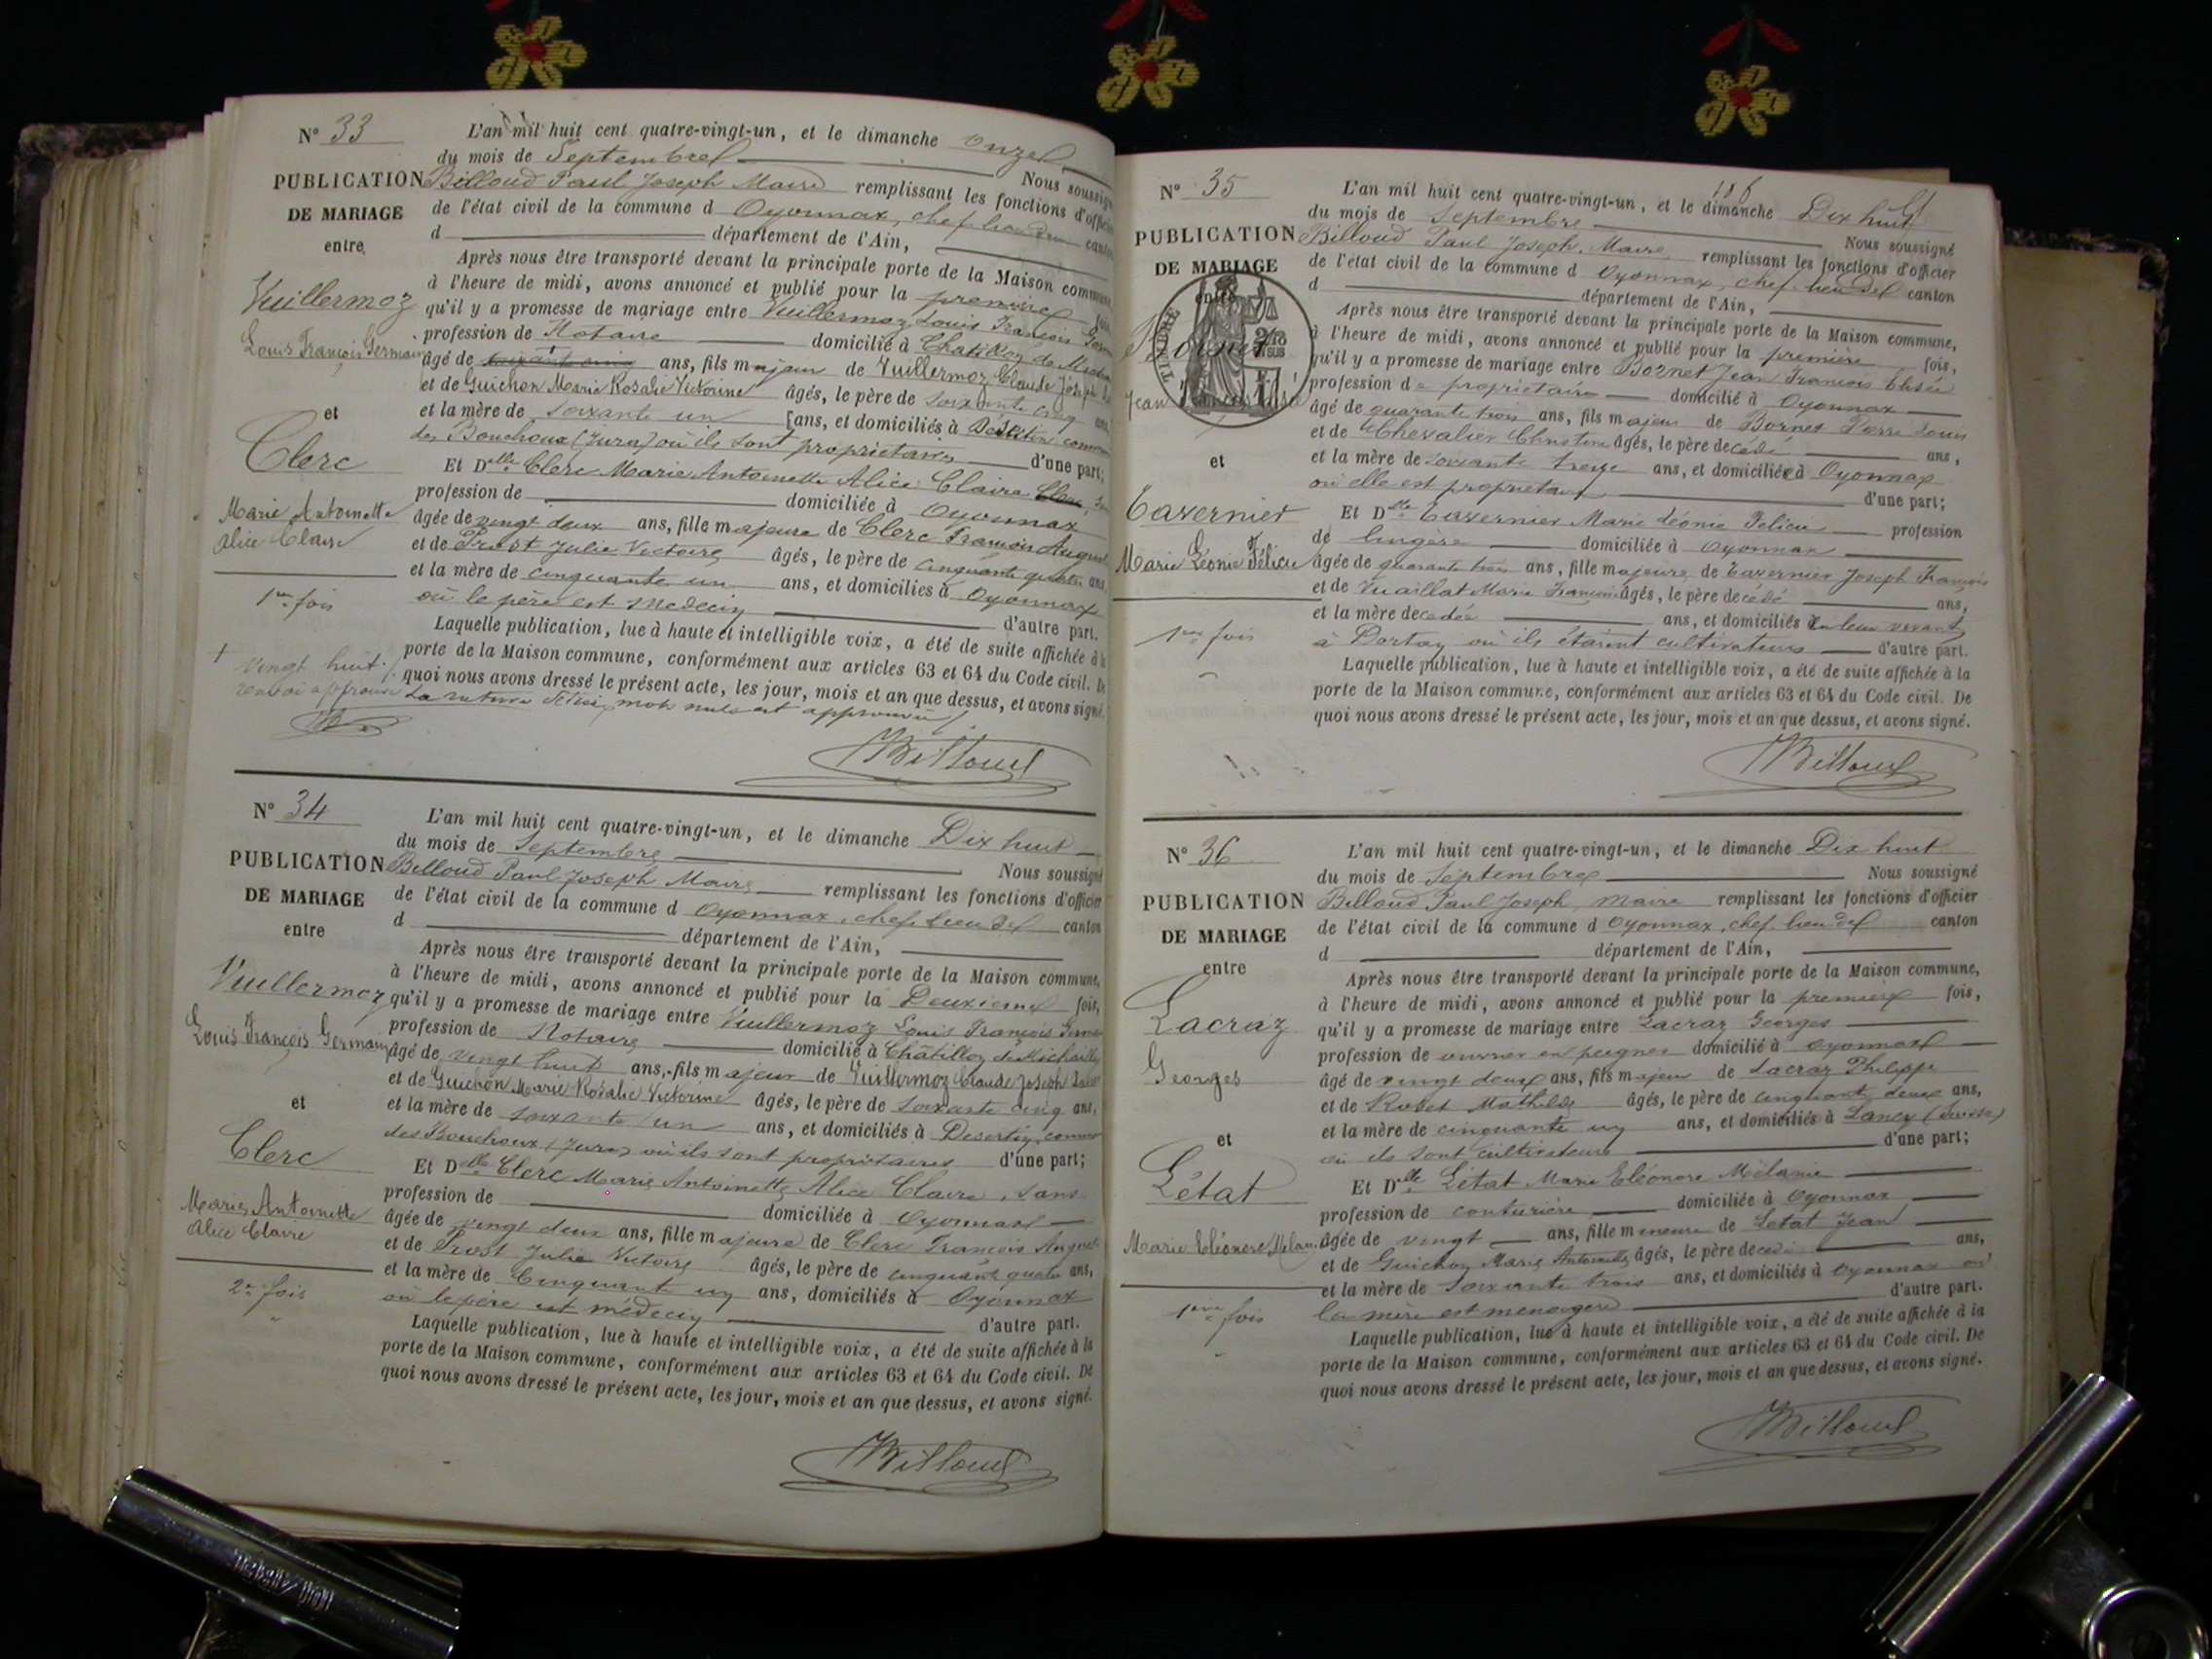 N° 33
PUBLICATION
DE MARIAGE
entre
Vuillermoz
Louis François Germain
et
Clerc
Marie Antoinette
Alice Claire
1re fois
+ vingt huit
renvoi approuvé
L'an mil huit cent quatre-vingt-un, et le dimanche onze
du mois de Septembre Nous soussigné
Billoud Paul Joseph Maire remplissant les fonctions d'officier
de l'état civil de la commune d Oyonnax, chef-lieu de canton
d département de l'Ain,
Après nous être transporté devant la principale porte de la Maison commune,
à l'heure de midi, avons annoncé et publié pour la première fois,
qu'il y a promesse de mariage entre Vuillermoz Louis François
profession de Notaire domicilié à Chatillon de
âgé de ans, fils majeur de Vuillermoz Claude Joseph
et de Guichon Marie Rosalie Victorine âgés, le père de soixante cinq ans,
et la mère de soixante un ans, et domiciliés à
des Bouchoux (Jura) où ils sont propriétaires d'une part;
Et Delle Clerc Marie Antoinette Alice Claire
profession de domiciliée à Oyonnax
âgée de vingt deux ans, fille majeure de Clerc François
et de Prost Julie Victoire âgés, le père de cinquante quatre ans
et la mère de cinquante un ans, et domiciliés à Oyonnax
où le père est médecin d'autre part.
Laquelle publication, lue à haute et intelligible voix, a été de suite affichée à la
porte de la Maison commune, conformément aux articles 63 et 64 du Code civil. De
quoi nous avons dressé le présent acte, les jour, mois et an que dessus, et avons signé.
La rature mots nuls est approuvée
Billoud
N° 34
PUBLICATION
DE MARIAGE
entre
Vuillermoz
Louis François Germain
et
Clerc
Marie Antoinette
Alice Claire
2e fois
L'an mil huit cent quatre-vingt-un, et le dimanche Dix huit
du mois de Septembre Nous soussigné
Billoud Paul Joseph Maire remplissant les fonctions d'officier
de l'état civil de la commune d Oyonnax, chef-lieu de canton
d département de l'Ain,
Après nous être transporté devant la principale porte de la Maison commune,
à l'heure de midi, avons annoncé et publié pour la Deuxième fois,
qu'il y a promesse de mariage entre Vuillermoz Louis François
profession de Notaire domicilié à Châtillon de Michaille
âgé de vingt huit ans, fils majeur de Vuillermoz Claude Joseph
et de Guichon Marie Rosalie Victorine âgés, le père de soixante cinq ans,
et la mère de soixante un ans, et domiciliés à Desertin, commune
des Bouchoux (Jura) où ils sont propriétaires d'une part;
Et Delle Clerc Marie Antoinette Alice Claire, sans
profession de domiciliée à Oyonnax
âgée de vingt deux ans, fille majeure de Clerc François
et de Prost Julie Victoire âgés, le père de cinquante quatre ans,
et la mère de Cinquante un ans, domiciliés à Oyonnax
où le père est médecin d'autre part.
Laquelle publication, lue à haute et intelligible voix, a été de suite affichée à la
porte de la Maison commune, conformément aux articles 63 et 64 du Code civil. De
quoi nous avons dressé le présent acte, les jour, mois et an que dessus, et avons signé.
Billoud
N° 35
PUBLICATION
DE MARIAGE
entre
TIMBRE
Bornet
Jean François Elisée
et
Tavernier
Marie Léonie Félicie
1re fois
L'an mil huit cent quatre-vingt-un, et le dimanche Dix huit
du mois de Septembre Nous soussigné
Billoud Paul Joseph, Maire remplissant les fonctions d'officier
de l'état civil de la commune d Oyonnax, chef-lieu de canton
d département de l'Ain,
Après nous être transporté devant la principale porte de la Maison commune,
à l'heure de midi, avons annoncé et publié pour la première fois,
qu'il y a promesse de mariage entre Bornet Jean François Elisée
profession de propriétaire domicilié à Oyonnax
âgé de quarante trois ans, fils majeur de Bornet Pierre Louis
et de Chevalier Christine âgés, le père decédé ans,
et la mère de soixante treize ans, et domiciliée à Oyonnax
où elle est propriétaire d'une part;
Et Delle Tavernier Marie Léonie Félicie profession
de lingère domiciliée à Oyonnax
âgée de quarante trois ans, fille majeure de Tavernier Joseph François
et de Vuaillat Marie Françoise âgés, le père decédé ans,
et la mère decédée ans, et domiciliés en leur vivant
à Dortan où ils étaient cultivateurs d'autre part.
Laquelle publication, lue à haute et intelligible voix, a été de suite affichée à la
porte de la Maison commune, conformément aux articles 63 et 64 du Code civil. De
quoi nous avons dressé le présent acte, les jour, mois et an que dessus, et avons signé.
Billoud
N° 36
PUBLICATION
DE MARIAGE
entre
Lacraz
Georges
et
Létat
Marie Eléonore Mélanie
1re fois
L'an mil huit cent quatre-vingt-un, et le dimanche Dix huit
du mois de Septembre Nous soussigné
Billoud Paul Joseph, Maire remplissant les fonctions d'officier
de l'état civil de la commune d Oyonnax, chef-lieu de canton
d département de l'Ain,
Après nous être transporté devant la principale porte de la Maison commune,
à l'heure de midi, avons annoncé et publié pour la première fois,
qu'il y a promesse de mariage entre Lacraz Georges
profession de ouvrier en peignes domicilié à Oyonnax
âgé de vingt deux ans, fils majeur de Lacraz Philippe
et de Mathilde âgés, le père de cinquante deux ans,
et la mère de cinquante un ans, et domiciliés à Lancy (Suisse)
où ils sont cultivateurs d'une part;
Et Delle Létat Marie Eléonore Mélanie
profession de couturière domiciliée à Oyonnax
âgée de vingt ans, fille mineure de Létat Jean
et de Guichon Marie Antoinette âgés, le père decédé ans,
et la mère de soixante trois ans, et domiciliés à Oyonnax où
la mère est ménagère d'autre part.
Laquelle publication, lue à haute et intelligible voix, a été de suite affichée à la
porte de la Maison commune, conformément aux articles 63 et 64 du Code civil. De
quoi nous avons dressé le présent acte, les jour, mois et an que dessus, et avons signé.
Billoud